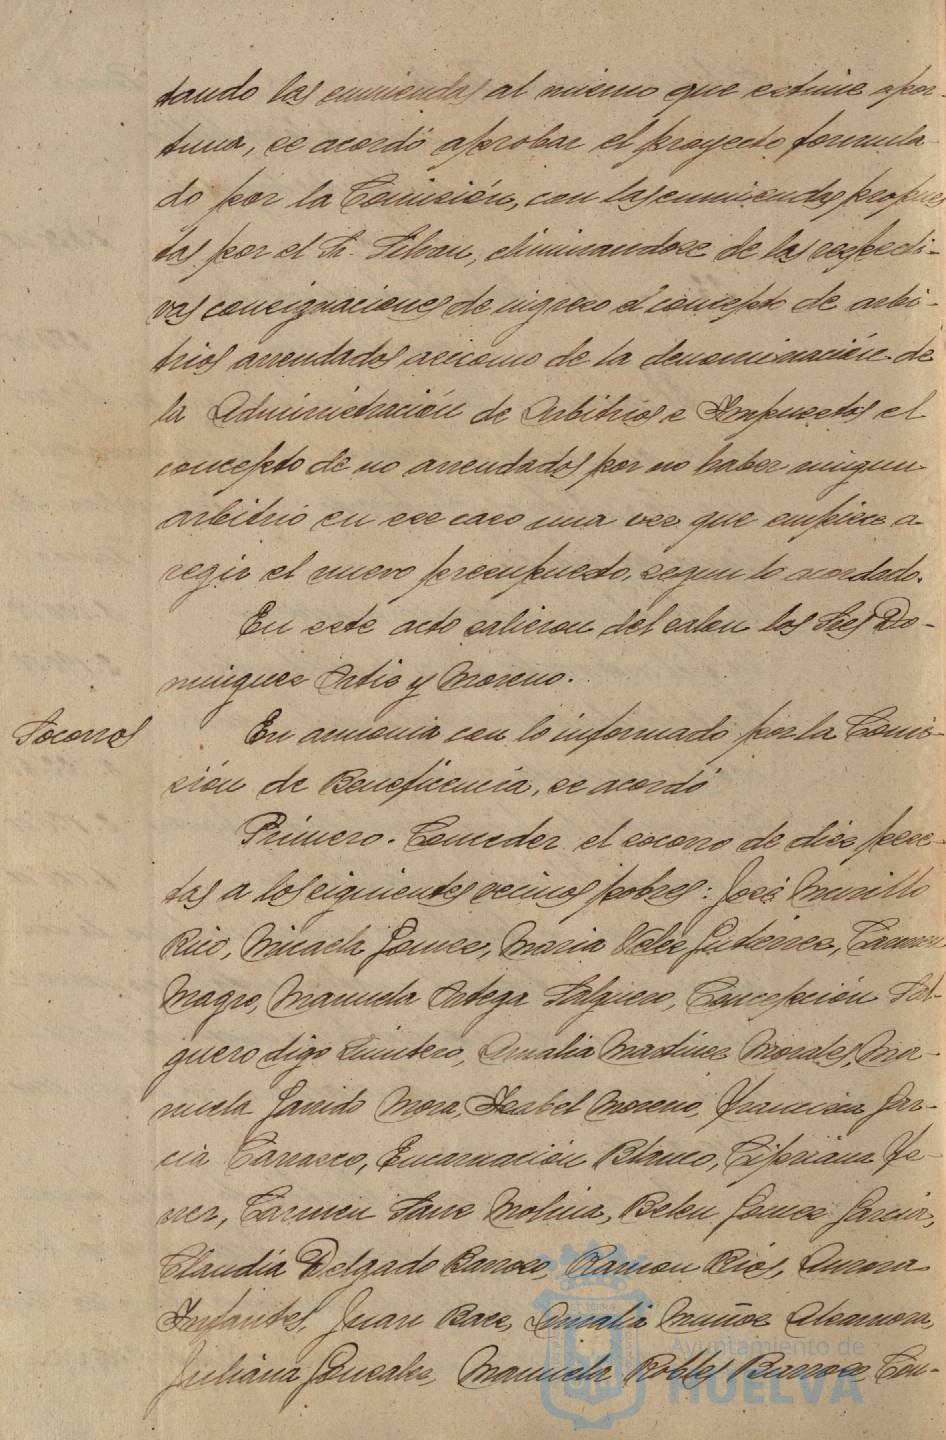 tando las enmiendas al mismo que estime opor-
tuna, se acordó aprobar el proyecto formula-
do por la Comisión, con las enmiendas propues
tas por el Sr. eliminandose de las respecti-
vas consignaciones de ingreso el concepto de arbi-
trios arrendados asi como de la denominación de
la Administración de Arbitrios e Impuestos el
concepto de no arrendados por no haber ningun
arbitrio en ese caso una vez que empiece a
regir el nuevo presupuesto, segun lo acordado.
En este acto salieron del salon los Sres Do-
minguez Ortiz y Moreno.
Socorros
En armonia con lo informado por la Comi-
sión de Beneficencia, se acordó
Primero. Conceder el socorro de diez pese-
tas a los siguientes vecinos pobres: José Murillo
Rico, Micaela Gomez, Maria Velez Gutierrez, Carmen
Magro, Manuela Ortega Salguero, Concepción Sal-
guero digo Quintero, Amalia Martinez Morales, Ma-
nuela Garrido Mora, Isabel Moreno, Francisca Gar-
cia Carrasco, Encarnación Blanco, Cipriana Fe-
rrer, Carmen Sanz Molina, Belen Gomez Garcia,
Claudia Delgado Barroso, Ramon Rios, Aurora
Infantes, Juan Baez, Amalia Muñoz
Juliana Gonzalez, Manuela Robles Barroso, Con-
Ayuntamiento de
HUELVA